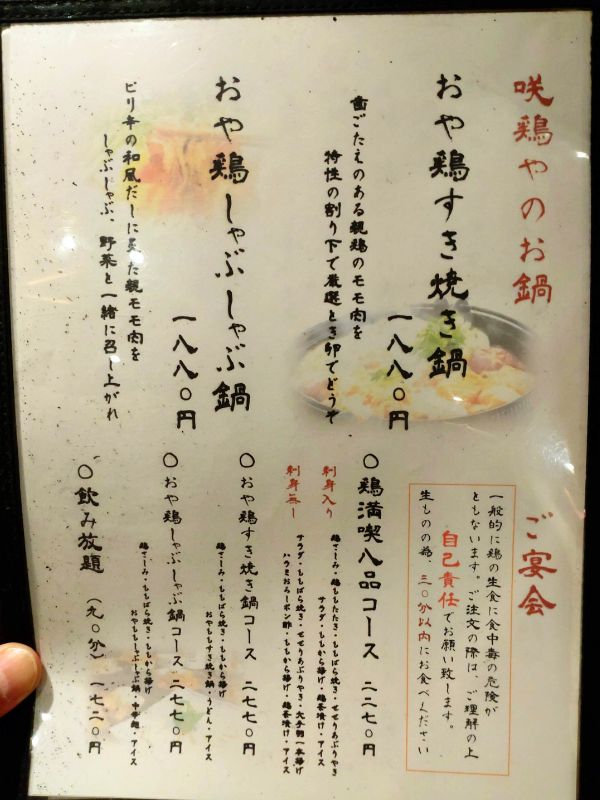 咲鶏やのお鍋
おや鶏すき焼き鍋
一八八〇円
歯ごたえのある親鶏のモモ肉を
特性の割り下で厳選とき卵でどうぞ
おや鶏しゃぶしゃぶ鍋
一八八〇円
ピリ辛の和風だしに
た親モモ肉を
しゃぶしゃぶ、野菜と一緒に召し上がれ
ご宴会
一般的に鶏の生食に食中毒の危険が
ともないます。ご注文の際は、ご理解の上
自己責任でお願い致します。
生ものの為、三〇分以内にお食べください
〇鶏満喫八品コース 二二七〇円
刺身入り
鶏さしみ・鶏ももたたき・ももばら焼き・せせりあぶりやき
サラダ・ももから揚げ・鶏茶漬け・アイス
刺身無し
サラダ・ももばら焼き・せせりあぶりやき・大手羽一本揚げ
ハラミおろしポン酢・ももから揚げ・鶏茶漬け・アイス
〇おや鶏すき焼き鍋コース 二七七〇円
鶏さしみ・ももばら焼き・ももから揚げ
おやももすき焼き鍋・うどん・アイス
〇おや鶏しゃぶしゃぶ鍋コース 二七七〇円
鶏さしみ・ももばら焼き・ももから揚げ
おやももしゃぶしゃぶ鍋・中華麺・アイス
〇飲み放題(九〇分)一七二〇円